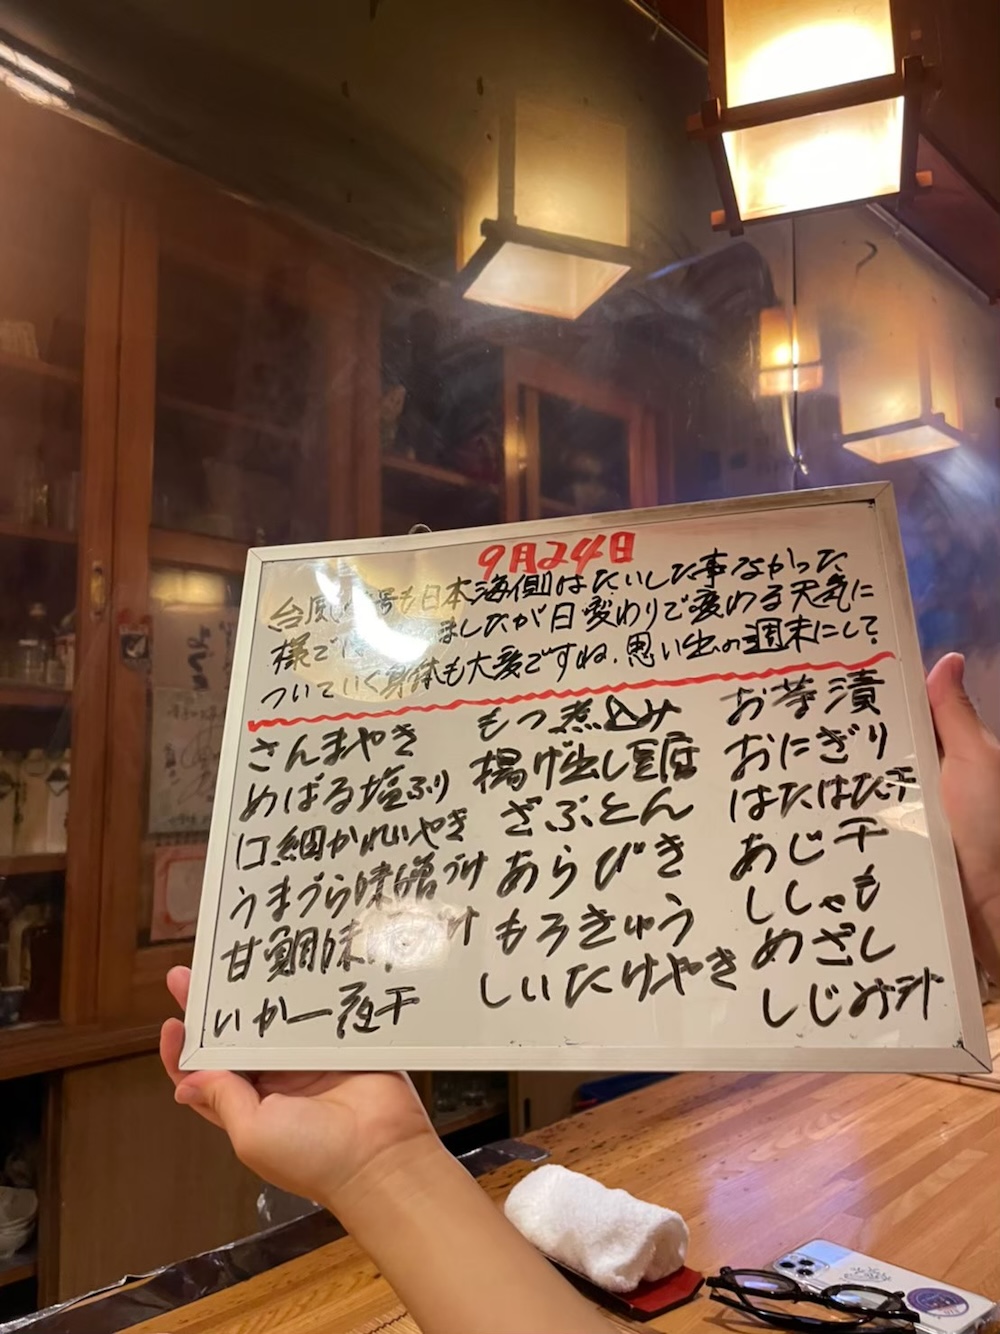 9月24日
台風 号も日本海側はたいした事なかった
様で ましたが日変わりで変わる天気に
ついていく身体も大変ですね。思い出の週末にして。
さんまやき
めばる塩ふり
口細かれいやき
うまづら味噌づけ
甘鯛味 づけ
いか一夜干
もつ煮込み
揚げ出し豆腐
ざぶとん
あらびき
もろきゅう
しいたけやき
お茶漬
おにぎり
はたはた干
あじ干
ししゃも
めざし
しじみ汁